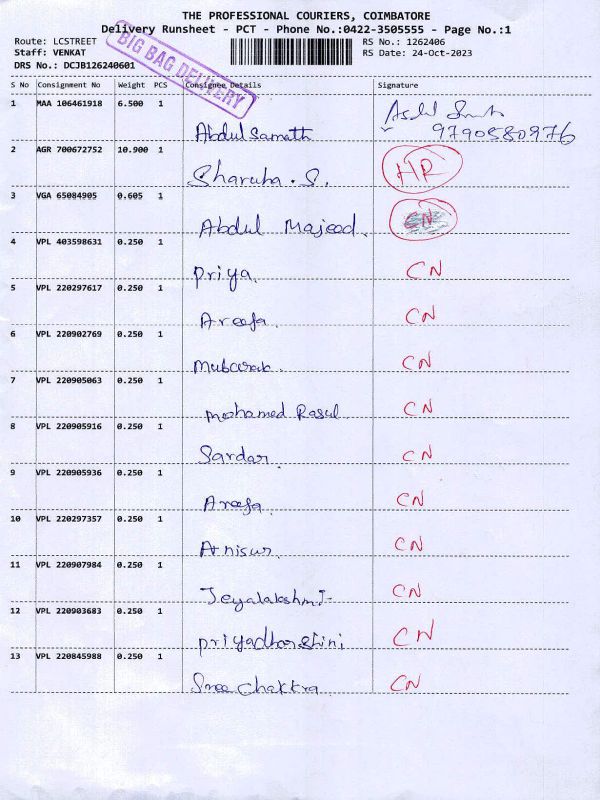 THE PROFESSIONAL COURIERS, COIMBATORE
Delivery Runsheet - PCT - Phone No.:0422-3505555 - Page No.:1
Route: LCSTREET RS No.: 1262406
Staff: VENKAT RS Date: 24-Oct-2023
DRS No.: DCJB126240601
BIG BAG DELIVERY
S No Consignment No Weight PCS Consignee Details Signature
1 MAA 106461918 6.500 1
Abdul Samath 9790580976
2 AGR 700672752 10.900 1
Sharuha . S. HR
3 VGA 65084905 0.605 1
Abdul Majeed. CN
4 VPL 403598631 0.250 1
Priya. CN
5 VPL 220297617 0.250 1
Areefa. CN
6 VPL 220902769 0.250 1
Mubarak. CN
7 VPL 220905063 0.250 1
Mohamed Rasul CN
8 VPL 220905916 0.250 1
Sardar. CN
9 VPL 220905936 0.250 1
Areefa CN
10 VPL 220297357 0.250 1
Anisur. CN
11 VPL 220907984 0.250 1
Jeyalakshmi- CN
12 VPL 220903683 0.250 1
Priyadharshini CN
13 VPL 220845988 0.250 1
Sree Chakkra CN